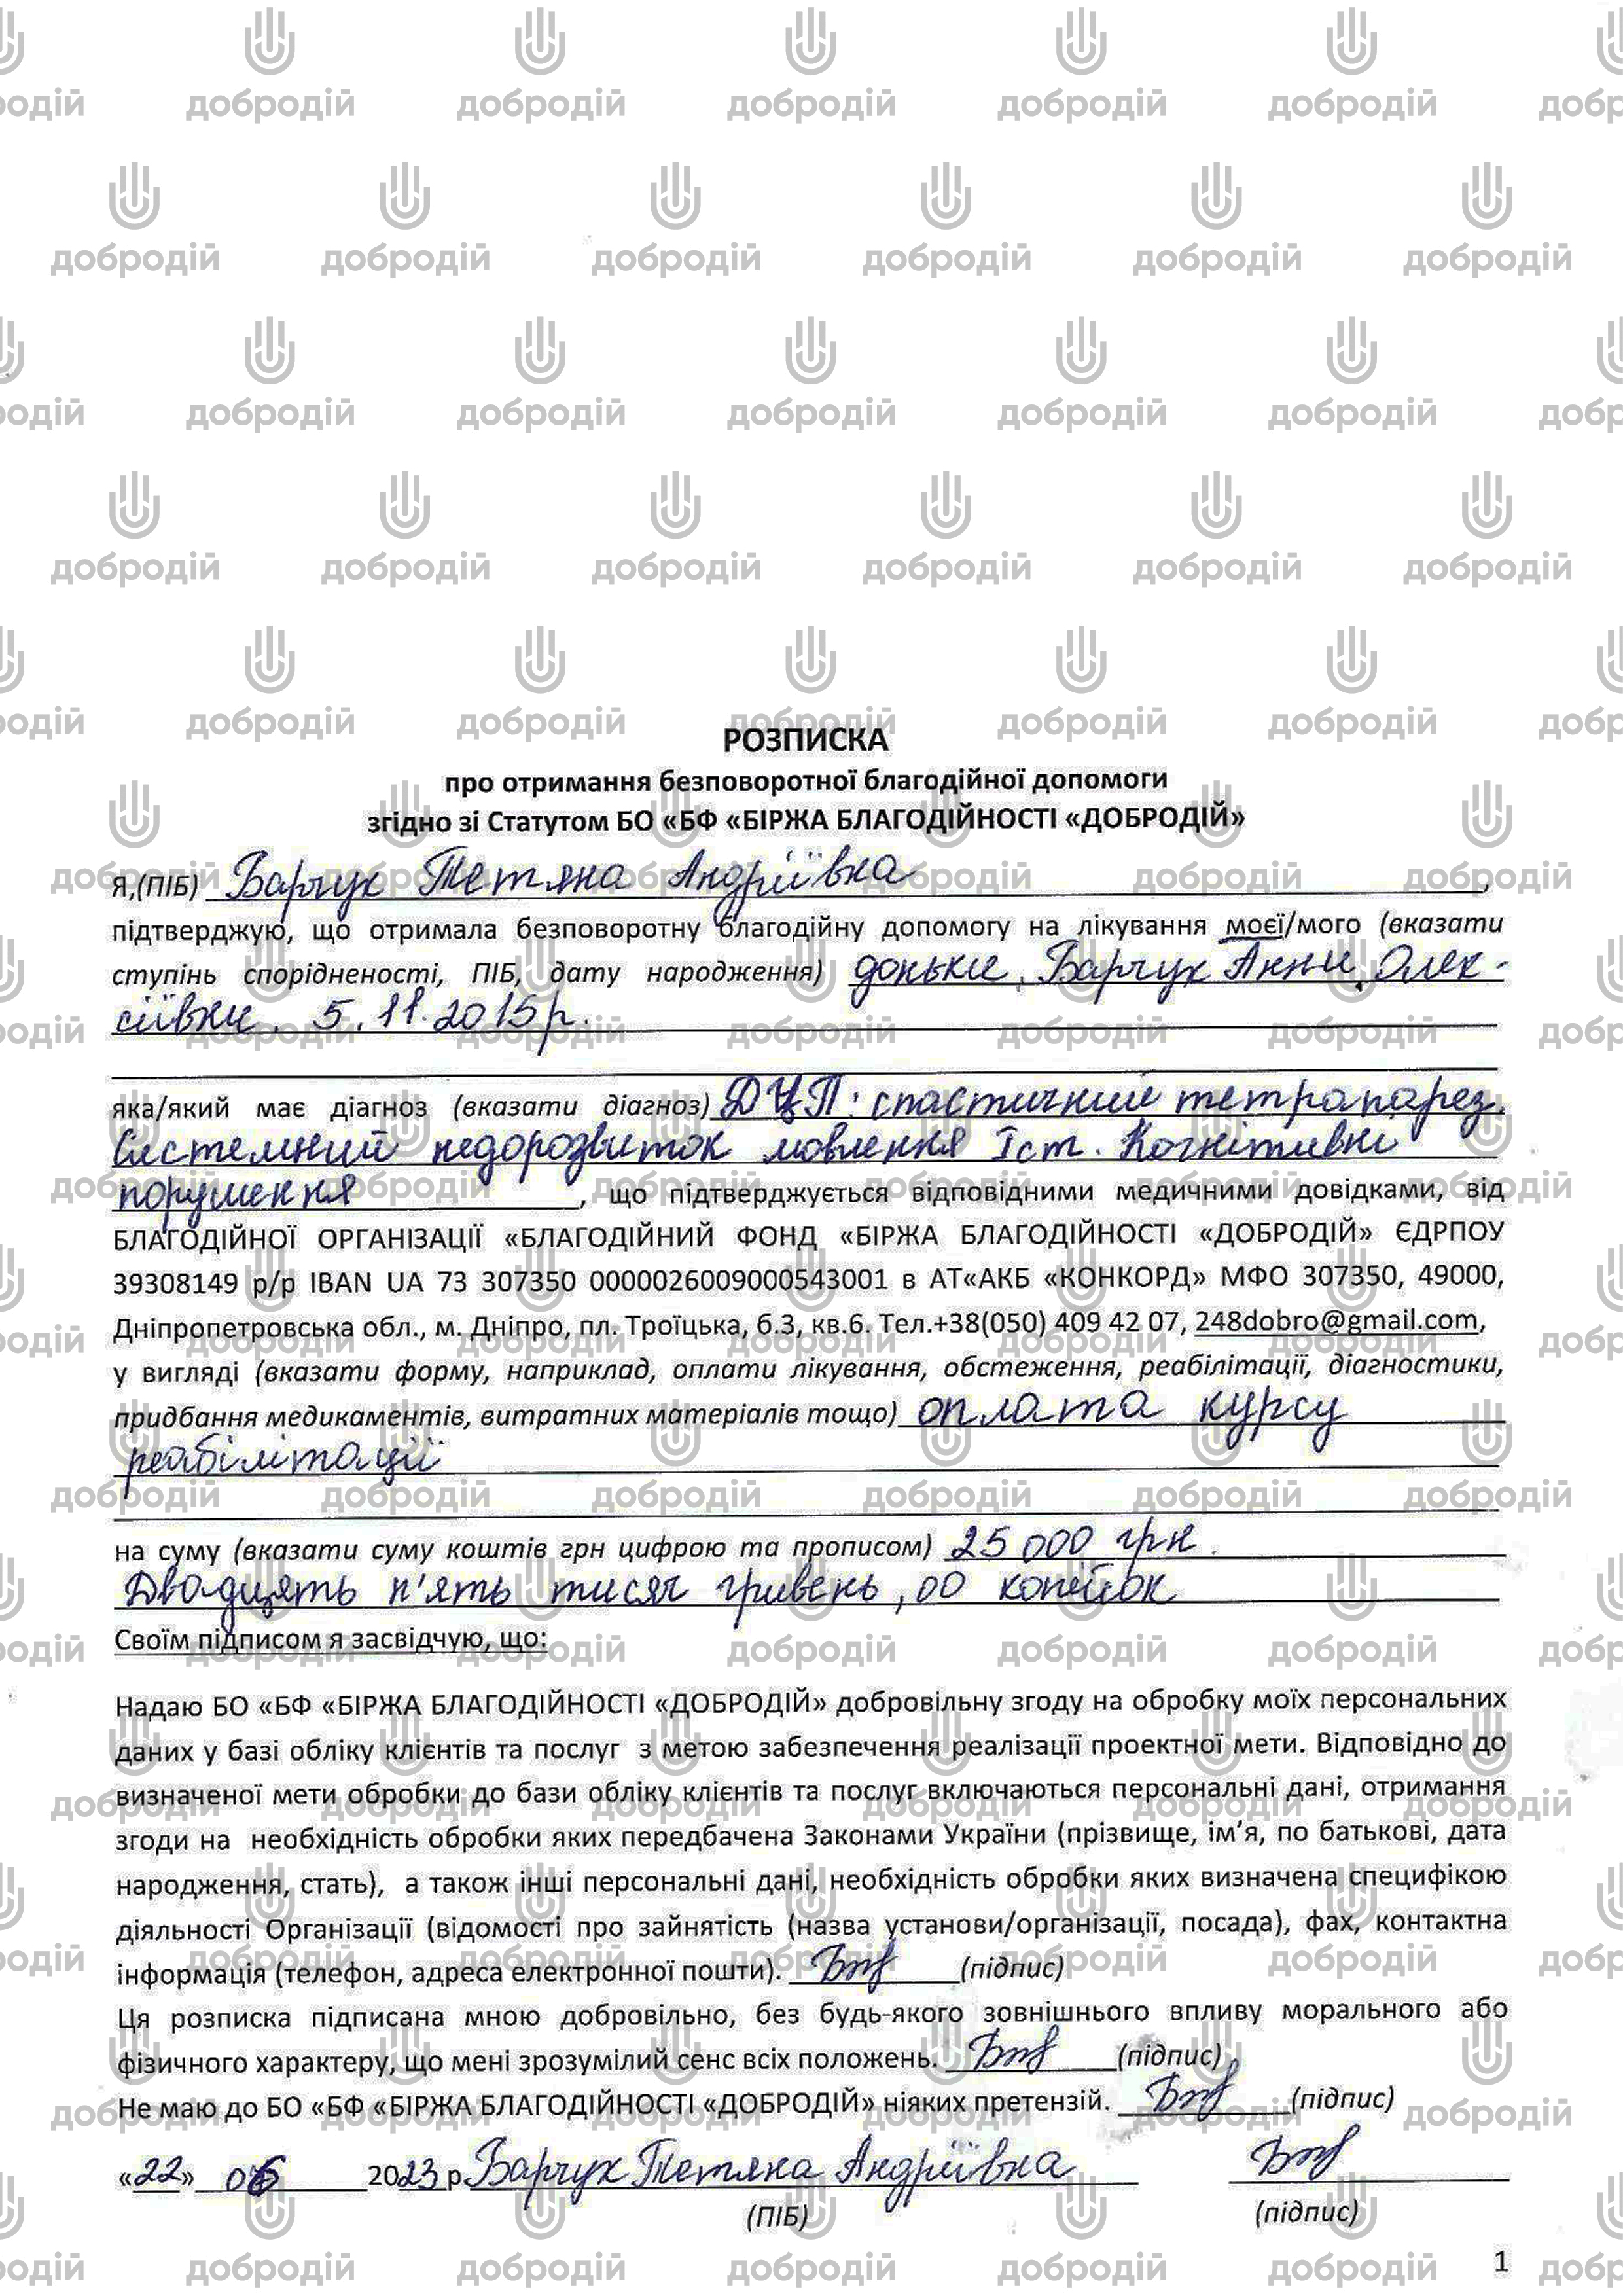 РОЗПИСКА
про отримання безповоротної благодійної допомоги
згідно зі Статутом БО «БФ «БІРЖА БЛАГОДІЙНОСТІ «ДОБРОДІЙ»
Я,(ПІБ) Варчук Тетяна Андріївна,
підтверджую, що отримала безповоротну благодійну допомогу на лікування моєї/мого (вказати
ступінь спорідненості, ПІБ, дату народження) доньки, Варчук Анни Олек-
сіївни. 5.11.2015р.
яка/який має діагноз (вказати діагноз) ДЦП: спастичний тетрапарез.
Системний недорозвиток мовлення Іст. Когнітивні
порушення, що підтверджується відповідними медичними довідками, від
БЛАГОДІЙНОЇ ОРГАНІЗАЦІЇ «БЛАГОДІЙНИЙ ФОНД «БІРЖА БЛАГОДІЙНОСТІ «ДОБРОДІЙ» ЄДРПОУ
39308149 р/р IBAN UA 73 307350 0000026009000543001 в АТ«АКБ «КОНКОРД» МФО 307350, 49000,
Дніпропетровська обл., м. Дніпро, пл. Троїцька, б.3, кв.6. Тел.+38(050) 409 42 07, 248dobro@gmail.com,
у вигляді (вказати форму, наприклад, оплати лікування, обстеження, реабілітації, діагностики,
придбання медикаментів, витратних матеріалів тощо) оплата курсу
реабілітації
на суму (вказати суму коштів грн цифрою та прописом) 25 000 грн.
Двадцять п'ять тисяч гривень, 00 копійок
Своїм підписом я засвідчую, що:
Надаю БО «БФ «БІРЖА БЛАГОДІЙНОСТІ «ДОБРОДІЙ» добровільну згоду на обробку моїх персональних
даних у базі обліку клієнтів та послуг з метою забезпечення реалізації проектної мети. Відповідно до
визначеної мети обробки до бази обліку клієнтів та послуг включаються персональні дані, отримання
згоди на необхідність обробки яких передбачена Законами України (прізвище, ім’я, по батькові, дата
народження, стать), а також інші персональні дані, необхідність обробки яких визначена специфікою
діяльності Організації (відомості про зайнятість (назва установи/організації, посада), фах, контактна
інформація (телефон, адреса електронної пошти). (підпис)
Ця розписка підписана мною добровільно, без будь-якого зовнішнього впливу морального або
фізичного характеру, що мені зрозумілий сенс всіх положень. (підпис)
Не маю до БО «БФ «БІРЖА БЛАГОДІЙНОСТІ «ДОБРОДІЙ» ніяких претензій. (підпис)
«22» 06 2023 р. Варчук Тетяна Андріївна
(ПІБ) (підпис)
1
добродій